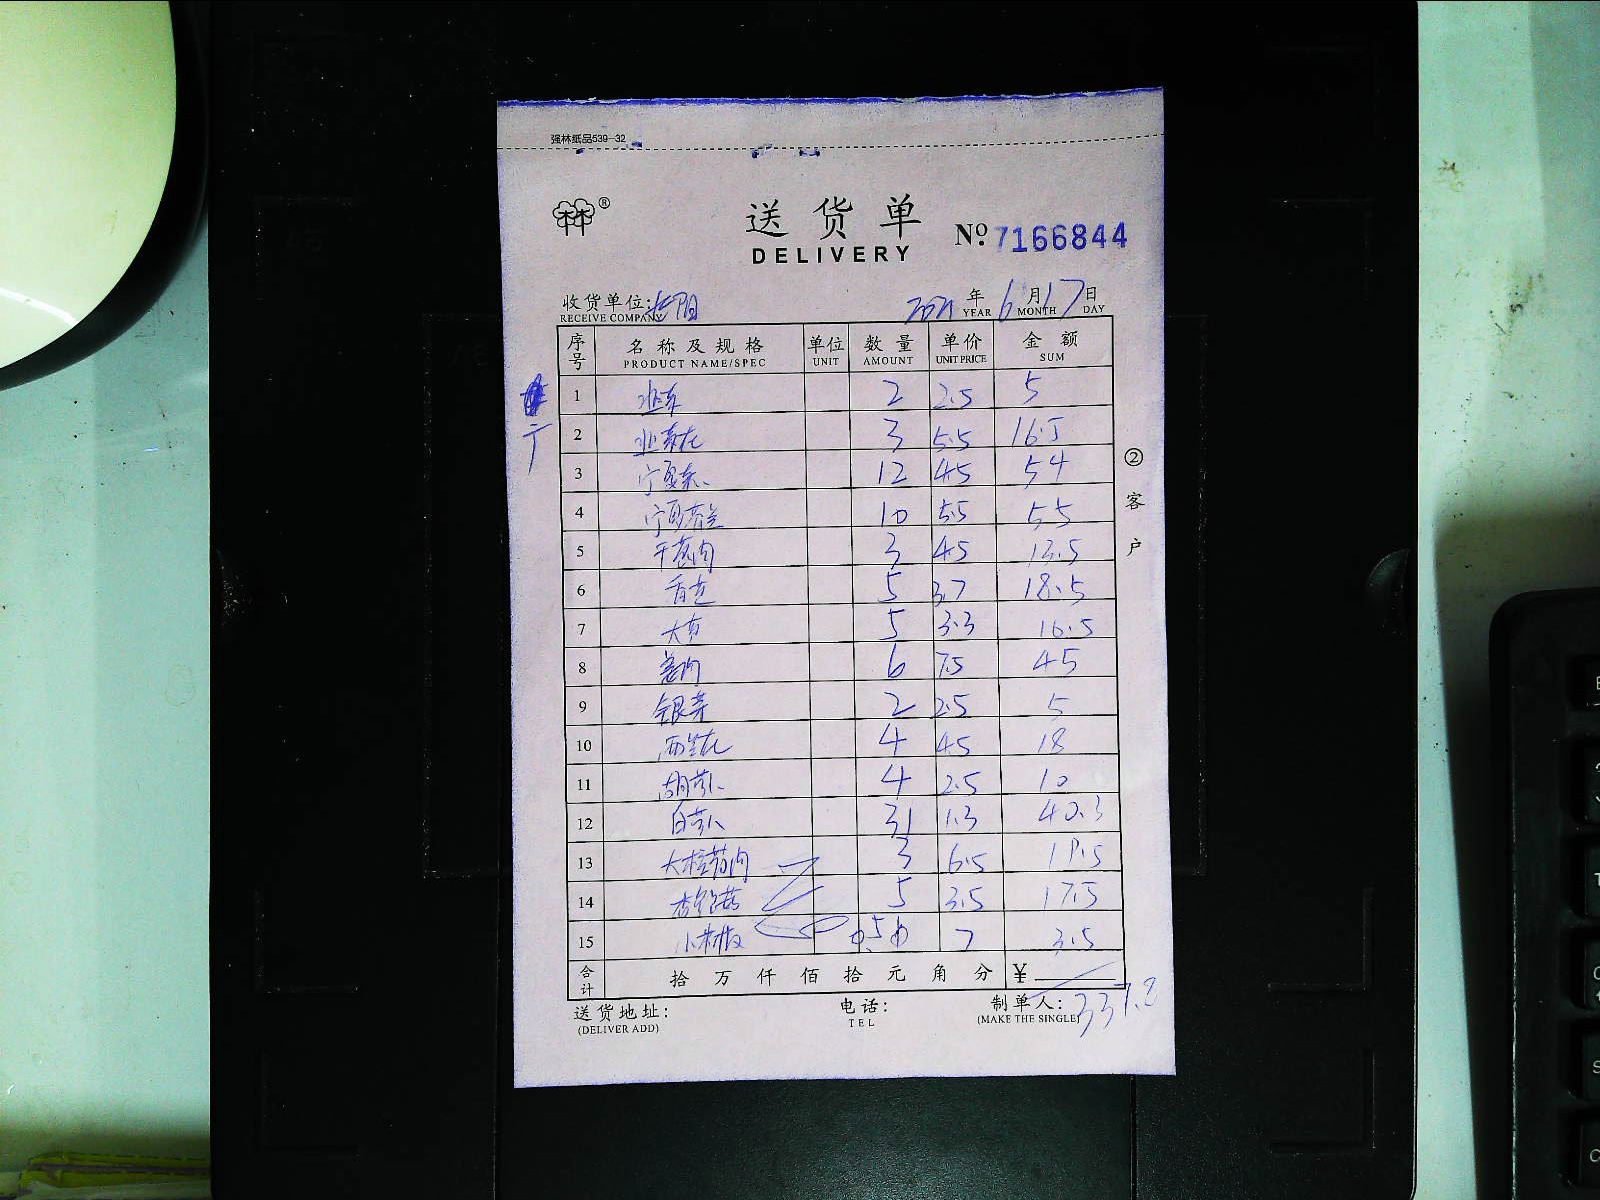 强林纸品539-32
®
送货单
DELIVERY
No. 7166844
收货单位: 岳阳
RECEIVE COMPANY
2021 年 6 月 17 日
YEAR MONTH DAY
序号 名称及规格 单位 数量 单价 金额
PRODUCT NAME/SPEC UNIT AMOUNT UNIT PRICE SUM
1 2 2.5 5
2 韭菜花 3 5.5 16.5
3 宁夏菜心 12 4.5 54
4 10 5.5 55
5 干葱肉 3 4.5 13.5
6 香芒 5 3.7 18.5
7 5 3.3 16.5
8 姜肉 6 7.5 45
9 银芽 2 2.5 5
10 西兰花 4 4.5 18
11 胡萝卜 4 2.5 10
12 白萝卜 31 1.3 40.3
13 3 6.5 19.5
14 杏鲍菇 5 3.5 17.5
15 小米椒 0.5 7 3.5
合计 拾 万 仟 佰 拾 元 角 分 ¥
337.8
②客户
送货地址:
(DELIVER ADD)
电话:
TEL
制单人:
(MAKE THE SINGLE)